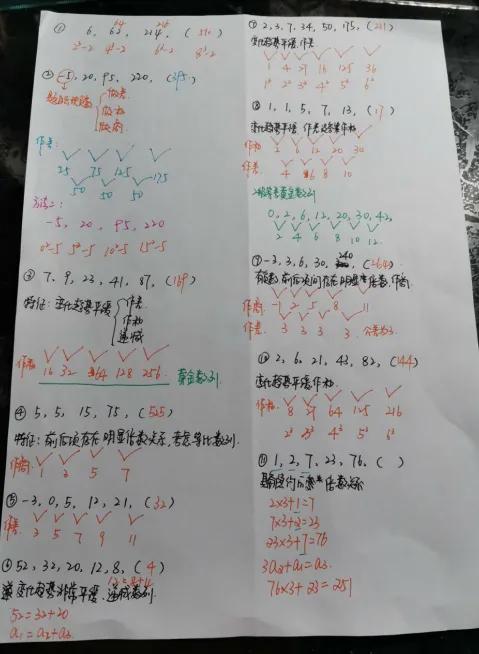 ① 6, 62, 214, (510)
64 216
2³-2 4³-2 6³-2 8³-2
② -5, 20, 95, 220, (395)
做差
做和
做商
作差:
25 75 125 175
50 50 50
方法二:
-5, 20, 95, 220
0²-5 5²-5 10²-5 15²-5
③ 7, 9, 23, 41, 87, (169)
特征: 变化趋势平缓
作差
作和
递减
作和
16 32 64 128 256
黄金数列
④ 5, 5, 15, 75, (525)
特征: 前后项存在明显倍数关系, 考虑等比数列.
作商:
1 3 5 7
⑤ -3, 0, 5, 12, 21, (32)
作差
3 5 7 9 11
⑥ 52, 32, 20, 12, 8, (4)
12=8+4
变化趋势非常平缓. 递减数列
52=32+20
a₁=a₂+a₃
⑦ 2, 3, 7, 34, 50, 175, (211)
变化趋势平缓, 作差
1 4 27 16 125 36
1² 2² 3³ 4² 5³ 6²
⑧ 1, 1, 5, 7, 13, (17)
变化趋势平缓, 作差
作和
2 6 12 20 30
作差:
4 6 8 10
0, 2, 6, 12, 20, 30, 42,
2 4 6 8 10 12
⑨ -3, 3, 6, 30, 240, (2640)
前后项间存在明显倍数, 作商.
作商:
-1 2 5 8 11
作差:
3 3 3 3 公差为3
⑩ 2, 6, 21, 43, 82, (144)
变化趋势平缓, 作和.
作和:
8 27 64 125 216
2³ 3³ 4³ 5³ 6³
⑪ 1, 2, 7, 23, 76, ( )
倍数关系
2×3+1=7
7×3+2=23
23×3+7=76
3a₂+a₁=a₃
76×3+23=251